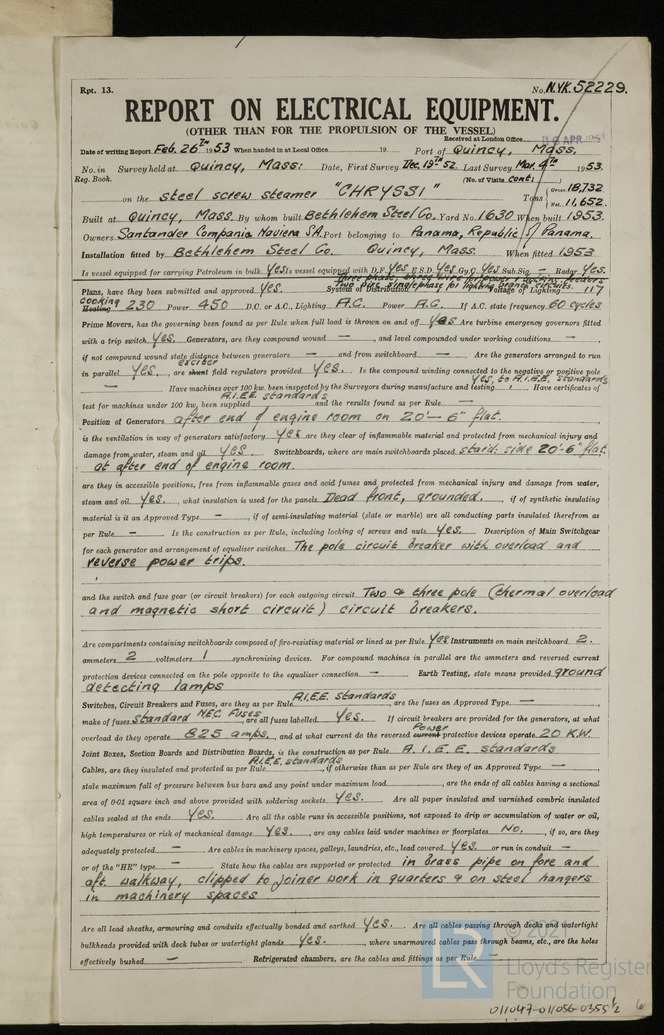 Rpt. 13. No. N.YK. 52229.
REPORT ON ELECTRICAL EQUIPMENT.
(OTHER THAN FOR THE PROPULSION OF THE VESSEL)
Received at London Office
Date of writing Report Feb. 26th 1953 When handed in at Local Office 19 Port of Quincy, Mass.
No. in Survey held at Quincy, Mass: Date, First Survey Dec. 19th 52. Last Survey Mar. 9th 1953.
Reg. Book. (No. of Visits cont: )
on the steel screw steamer "CHRYSSI" Tons { Gross 18,732
Net 11,652.
Built at Quincy, Mass. By whom built Bethlehem Steel Co. Yard No. 1630 When built 1953.
Owners Santander Compania Naviena SA. Port belonging to Panama, Republic of Panama.
Installation fitted by Bethlehem Steel Co. Quincy, Mass. When fitted 1953
Is vessel equipped for carrying Petroleum in bulk Yes Is vessel equipped with D.F. Yes E.S.D. Yes Gy.C. Yes Sub.Sig. — Radar Yes.
Three phase, three wire for power & lighting feeders
Two wire single phase for lighting branch circuits.
Plans, have they been submitted and approved Yes. System of Distribution Voltage of Lighting 117
cooking
Heating 230 Power 450 D.C. or A.C., Lighting A.C. Power A.C. If A.C. state frequency 60 cycles
Prime Movers, has the governing been found as per Rule when full load is thrown on and off Yes Are turbine emergency governors fitted
with a trip switch Yes. Generators, are they compound wound —, and level compounded under working conditions —,
if not compound wound state distance between generators — and from switchboard — Are the generators arranged to run
exciter
in parallel Yes., are shunt field regulators provided Yes. Is the compound winding connected to the negative or positive pole
— Have machines over 100 kw. been inspected by the Surveyors during manufacture and testing Yes, to A.I.E.E. standards Have certificates of
A.I.EE. standards
test for machines under 100 kw. been supplied and the results found as per Rule —
Position of Generators after end of engine room on 20'-6" flat.
is the ventilation in way of generators satisfactory Yes are they clear of inflammable material and protected from mechanical injury and
damage from water, steam and oil Yes. Switchboards, where are main switchboards placed starb. side 20'-6" flat.
at after end of engine room.
are they in accessible positions, free from inflammable gases and acid fumes and protected from mechanical injury and damage from water,
steam and oil Yes., what insulation is used for the panels Dead front, grounded., if of synthetic insulating
material is it an Approved Type —, if of semi-insulating material (slate or marble) are all conducting parts insulated therefrom as
per Rule — Is the construction as per Rule, including locking of screws and nuts Yes. Description of Main Switchgear
for each generator and arrangement of equaliser switches The pole circuit breaker with overload and
reverse power trips.
and the switch and fuse gear (or circuit breakers) for each outgoing circuit Two & three pole (thermal overload
and magnetic short circuit) circuit breakers.
Are compartments containing switchboards composed of fire-resisting material or lined as per Rule Yes Instruments on main switchboard 2.
ammeters 2 voltmeters 1 synchronising devices. For compound machines in parallel are the ammeters and reversed current
protection devices connected on the pole opposite to the equaliser connection — Earth Testing, state means provided ground
detecting lamps
Switches, Circuit Breakers and Fuses, are they as per Rule A.I.EE. standards are the fuses an Approved Type —
make of fuses standard NEC Fuses, are all fuses labelled Yes. If circuit breakers are provided for the generators, at what
Power
overload do they operate 825 amps., and at what current do the reversed current protective devices operate 20 K.W.
Joint Boxes, Section Boards and Distribution Boards, is the construction as per Rule A.I.E.E. standards
A.I.EE. standards
Cables, are they insulated and protected as per Rule, if otherwise than as per Rule are they of an Approved Type —,
state maximum fall of pressure between bus bars and any point under maximum load, are the ends of all cables having a sectional
area of 0·01 square inch and above provided with soldering sockets Yes. Are all paper insulated and varnished cambric insulated
cables sealed at the ends Yes. Are all the cable runs in accessible positions, not exposed to drip or accumulation of water or oil,
high temperatures or risk of mechanical damage Yes., are any cables laid under machines or floorplates No., if so, are they
adequately protected — Are cables in machinery spaces, galleys, laundries, etc., lead covered Yes. or run in conduit —
or of the "HR" type — State how the cables are supported or protected in brass pipe on fore and
aft. walkway, clipped to joiner work in quarters & on steel hangers
in machinery spaces
Are all lead sheaths, armouring and conduits effectually bonded and earthed Yes. Are all cables passing through decks and watertight
bulkheads provided with deck tubes or watertight glands Yes., where unarmoured cables pass through beams, etc., are the holes
effectively bushed — Refrigerated chambers, are the cables and fittings as per Rule —
LR
© 2021
Lloyd's Register
Foundation
011047-011056-0355 1/2